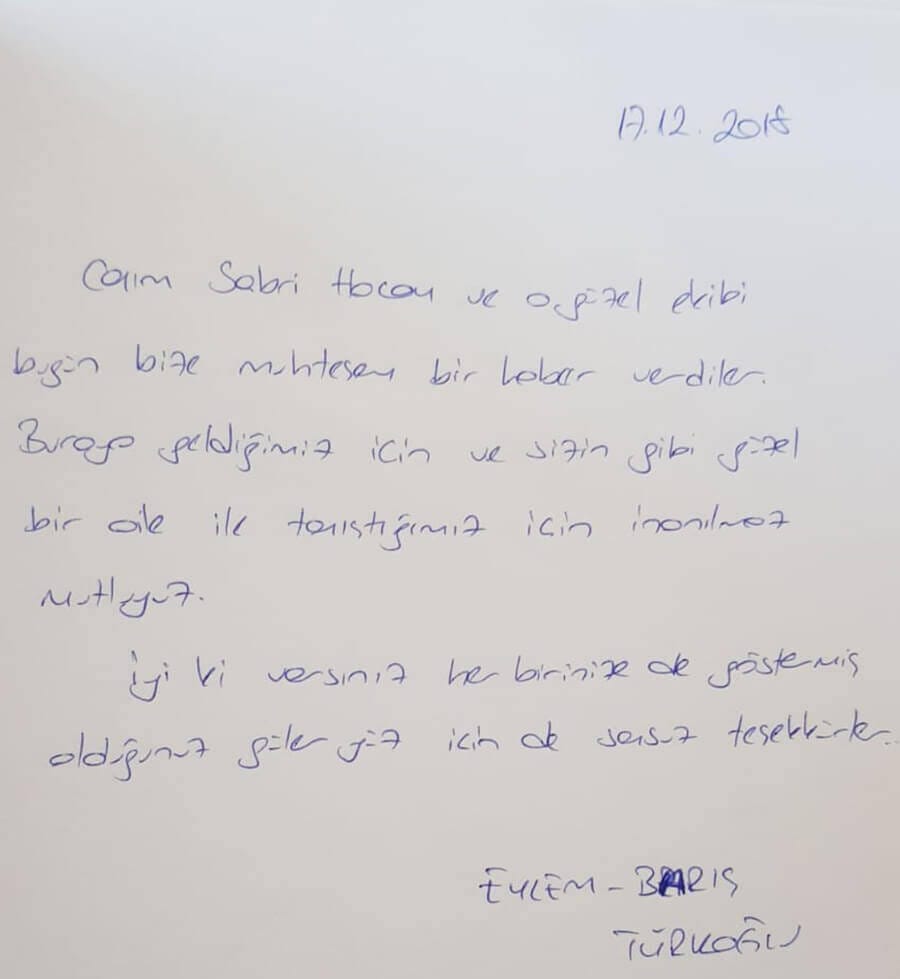 17.12.2018
Canım Sabri Hocam ve o güzel ekibi
bugün bize muhteşem bir haber verdiler.
Buraya geldiğimiz için ve sizin gibi güzel
bir aile ile tanıştığımız için inanılmaz
mutluyuz.
İyi ki varsınız her birinize de göstermiş
olduğunuz güler yüz için de sonsuz teşekkürler..
EYLEM - BARIŞ
TÜRKOĞLU